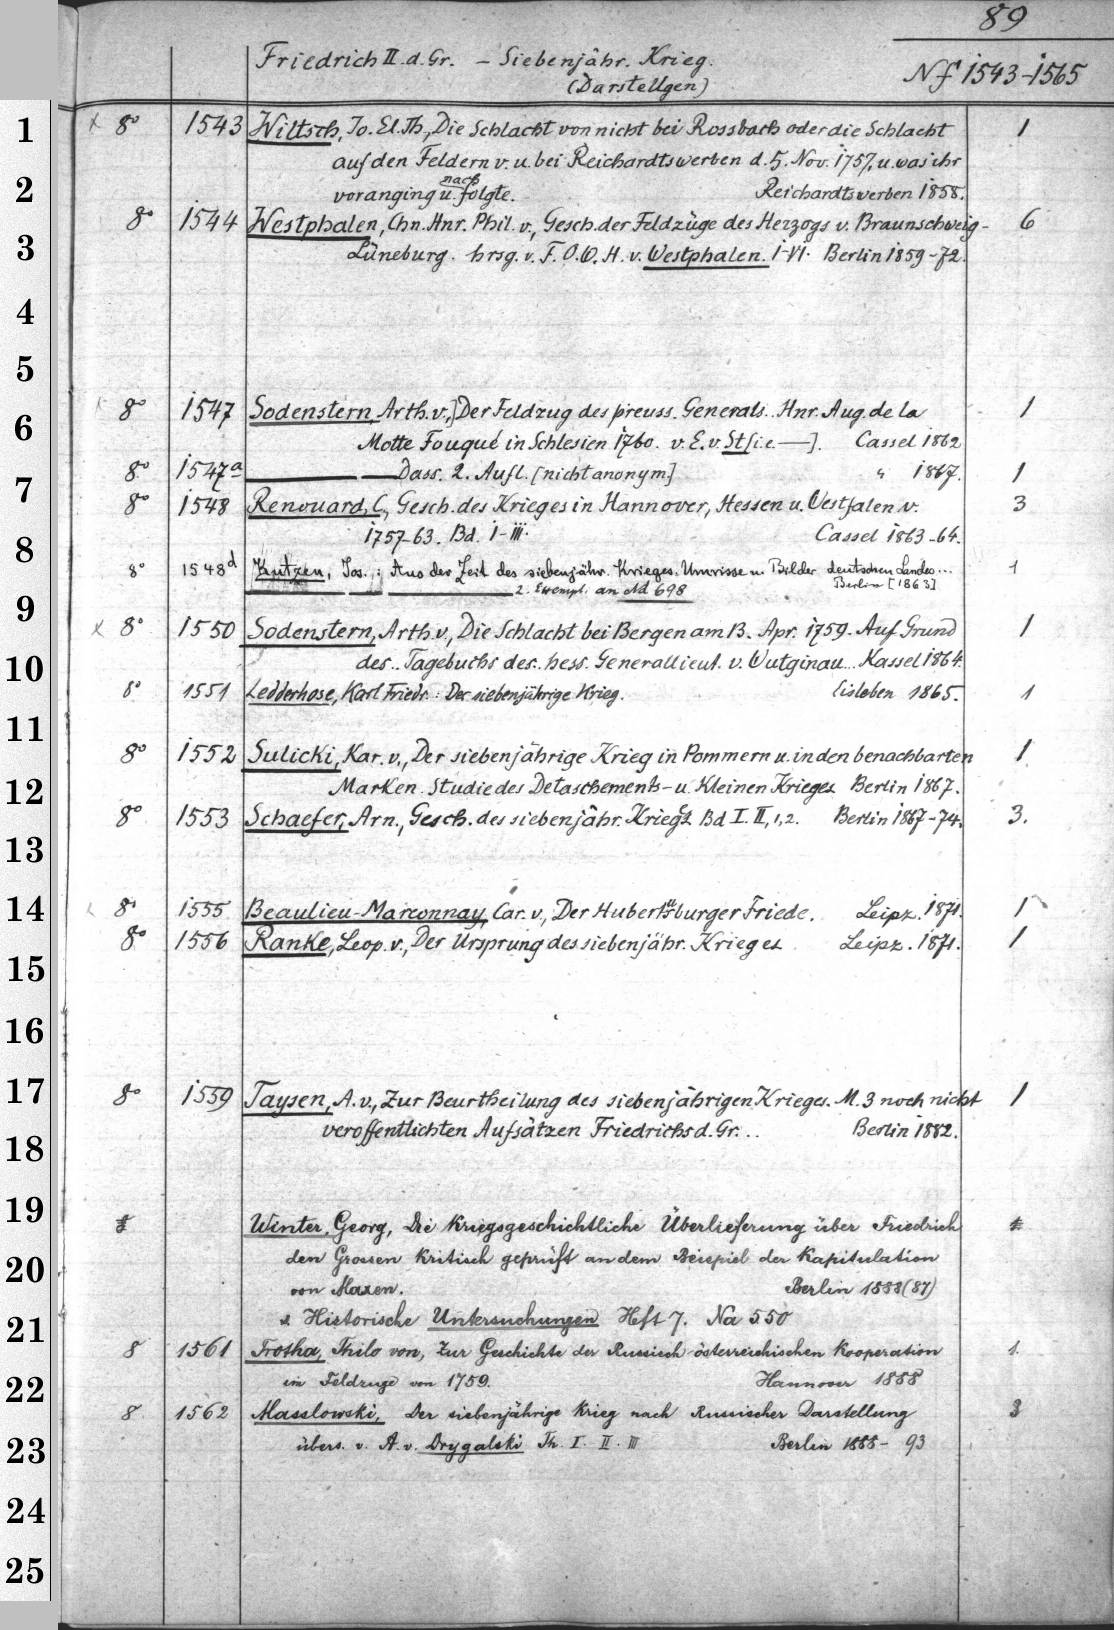 89
Friedrich II. d. Gr. – Siebenjähr. Krieg.
(Darstellgen)
Nf 1543-1565
1
x 8° 1543 Wiltsch, Jo. El. Th., Die Schlacht von nicht bei Rossbach oder die Schlacht 1
auf den Feldern v. u. bei Reichardtswerben d. 5. Nov. 1757, u. was ihr
2
voranging u. nach folgte. Reichardtswerben 1858.
8° 1544 Westphalen, Chn. Hnr. Phil. v., Gesch. der Feldzüge des Herzogs v. Braunschweig- 6
3
Lüneburg. hrsg. v. F. O. W. H. v. Westphalen. I-VI. Berlin 1859-72.
4
5
x 8° 1547 Sodenstern, Arth. v.,] Der Feldzug des preuss. Generals.. Hnr. Aug. de la 1
6
Motte Fouqué in Schlesien 1760. v. E. v. St[i.e. —]. Cassel 1862
8° 1547a ——— —— Dass. 2. Aufl. [nicht anonym] " 1867. 1
7
8° 1548 Renouard, C., Gesch. des Krieges in Hannover, Hessen u. Westfalen v. 3
1757-63. Bd. I-III. Cassel 1863-64.
8
8° 1548d Kutzen, Jos.,: Aus der Zeit des siebenjähr. Krieges. Umrisse u. Bilder deutschen Landes... 1
Berlin [1863]
2. Exempl. an Nd 698
9
x 8° 1550 Sodenstern, Arth. v., Die Schlacht bei Bergen am 13. Apr. 1759. Auf Grund 1
10
des.. Tagebuchs des.. hess. Generallieut. v. Wutginau... Kassel 1864.
8° 1551 Ledderhose, Karl Friedr.: Der siebenjährige Krieg. Eisleben 1865. 1
11
8° 1552 Sulicki, Kar. v., Der siebenjährige Krieg in Pommern u. in den benachbarten 1
12
Marken. Studie des Detaschements- u. Kleinen Krieges Berlin 1867.
8° 1553 Schaefer, Arn., Gesch. des siebenjähr. Kriegs Bd I. II, 1, 2. Berlin 1867-74. 3.
13
14
8° 1555 Beaulieu-Marconnay, Car. v., Der Hubertusburger Friede. Leipz. 1871. 1
8° 1556 Ranke, Leop. v., Der Ursprung des siebenjähr. Krieges Leipz. 1871. 1
15
16
17
8° 1559 Taysen, A. v., Zur Beurtheilung des siebenjährigen Krieges. M. 3 noch nicht 1
veröffentlichten Aufsätzen Friedrichs d. Gr... Berlin 1882.
18
19
Winter, Georg, Die kriegsgeschichtliche Überlieferung über Friedrich
20
den Grossen kritisch geprüft an dem Beispiel der Kapitulation
von Maxen. Berlin 1888 (87)
21
s. Historische Untersuchungen Heft 7. Na 550
8 1561 Trotha, Thilo von, Zur Geschichte der Russisch-österreichischen Kooperation 1.
22
im Feldzuge von 1759. Hannover 1888
8 1562 Masslowski, Der siebenjährige Krieg nach Russischer Darstellung 3
23
übers. v. A. v. Drygalski Th. I. II. III Berlin 1888-93
24
25